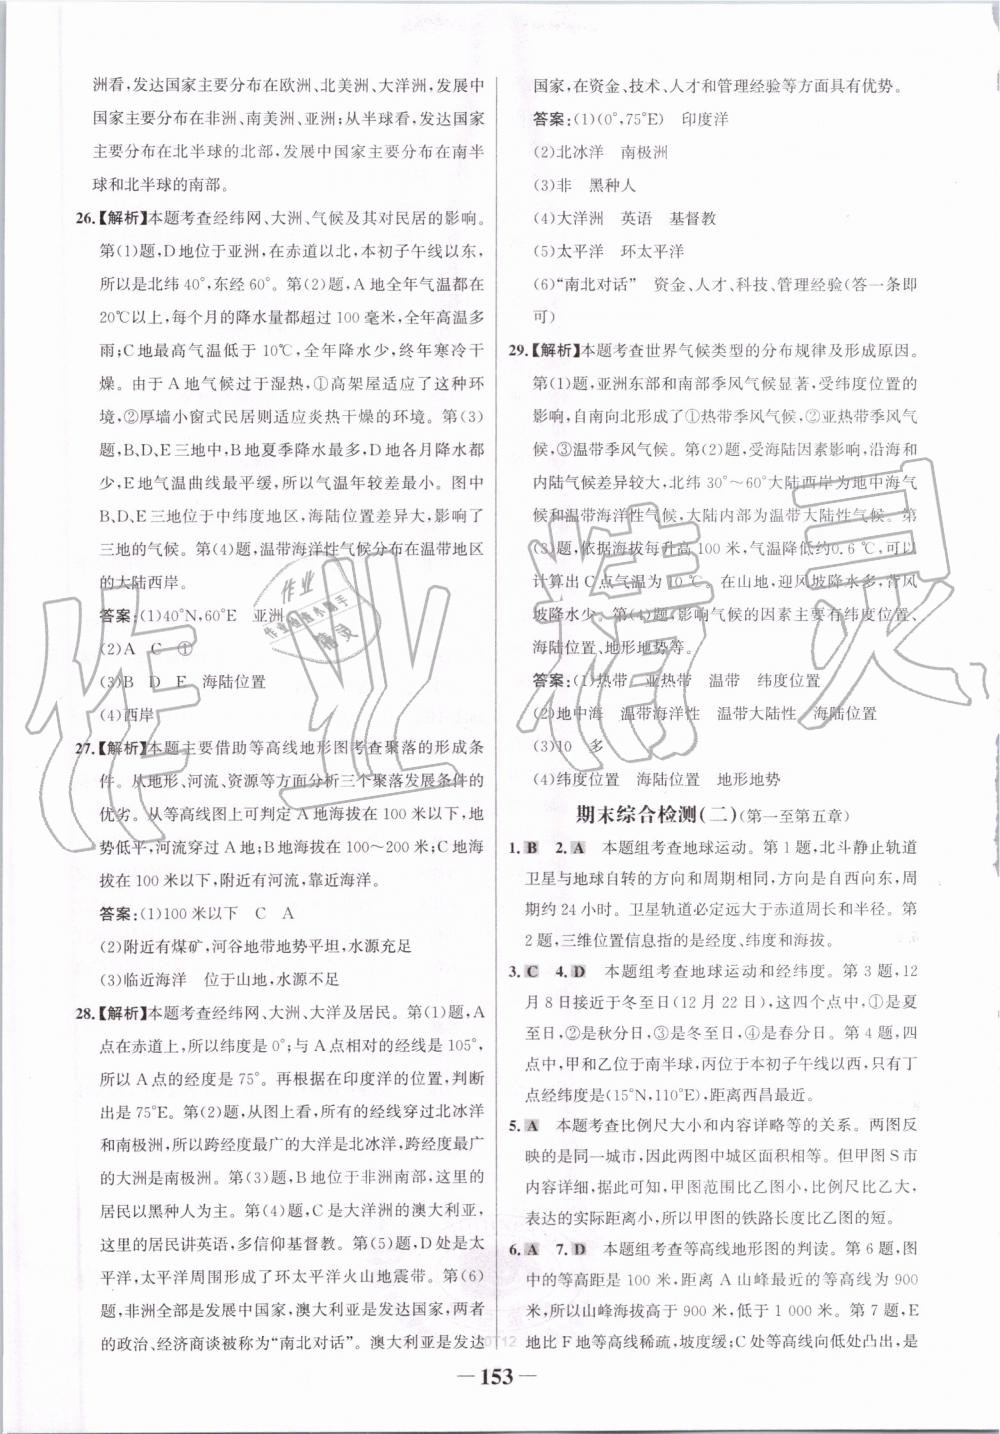 洲看,发达国家主要分布在欧洲、北美洲、大洋洲,发展中
国家主要分布在非洲、南美洲、亚洲;从半球看,发达国家
主要分布在北半球的北部,发展中国家主要分布在南半
球和北半球的南部。
26.【解析】本题考查经纬网、大洲、气候及其对民居的影响。
第(1)题,D地位于亚洲,在赤道以北,本初子午线以东,
所以是北纬40°,东经60°。第(2)题,A地全年气温都在
20℃以上,每个月的降水量都超过100毫米,全年高温多
雨;C地最高气温低于10℃,全年降水少,终年寒冷干
燥。由于A地气候过于湿热,①高架屋适应了这种环
境,②厚墙小窗式民居则适应炎热干燥的环境。第(3)
题,B、D、E三地中,B地夏季降水最多,D地各月降水都
少,E地气温曲线最平缓,所以气温年较差最小。图中
B、D、E三地位于中纬度地区,海陆位置差异大,影响了
三地的气候。第(4)题,温带海洋性气候分布在温带地区
的大陆西岸。
答案:(1)40°N,60°E 亚洲
(2)A C ①
(3)B D E 海陆位置
(4)西岸
27.【解析】本题主要借助等高线地形图考查聚落的形成条
件。从地形、河流、资源等方面分析三个聚落发展条件的
优劣。从等高线图上可判定A地海拔在100米以下,地
势低平,河流穿过A地;B地海拔在100~200米;C地海
拔在100米以下,附近有河流,靠近海洋。
答案:(1)100米以下 C A
(2)附近有煤矿,河谷地带地势平坦,水源充足
(3)临近海洋 位于山地,水源不足
28.【解析】本题考查经纬网、大洲、大洋及居民。第(1)题,A
点在赤道上,所以纬度是0°;与A点相对的经线是105°,
所以A点的经度是75°。再根据在印度洋的位置,判断
出是75°E。第(2)题,从图上看,所有的经线穿过北冰洋
和南极洲,所以跨经度最广的大洋是北冰洋,跨经度最广
的大洲是南极洲。第(3)题,B地位于非洲南部,这里的
居民以黑种人为主。第(4)题,C是大洋洲的澳大利亚,
这里的居民讲英语,多信仰基督教。第(5)题,D处是太
平洋,太平洋周围形成了环太平洋火山地震带。第(6)
题,非洲全部是发展中国家,澳大利亚是发达国家,两者
的政治、经济商谈被称为“南北对话”。澳大利亚是发达
国家,在资金、技术、人才和管理经验等方面具有优势。
答案:(1)(0°,75°E) 印度洋
(2)北冰洋 南极洲
(3)非 黑种人
(4)大洋洲 英语 基督教
(5)太平洋 环太平洋
(6)“南北对话” 资金、人才、科技、管理经验(答一条即
可)
29.【解析】本题考查世界气候类型的分布规律及形成原因。
第(1)题,亚洲东部和南部季风气候显著,受纬度位置的
影响,自南向北形成了①热带季风气候,②亚热带季风气
候,③温带季风气候。第(2)题,受海陆因素影响,沿海和
内陆气候差异较大,北纬30°~60°大陆西岸为地中海气
候和温带海洋性气候,大陆内部为温带大陆性气候。第
(3)题,依据海拔每升高100米,气温降低约0.6℃,可以
计算出C点气温为10℃。在山地,迎风坡降水多,背风
坡降水少。第(4)题,影响气候的因素主要有纬度位置、
海陆位置、地形地势等。
答案:(1)热带 亚热带 温带 纬度位置
(2)地中海 温带海洋性 温带大陆性 海陆位置
(3)10 多
(4)纬度位置 海陆位置 地形地势
期末综合检测(二)(第一至第五章)
1. B 2. A 本题组考查地球运动。第1题,北斗静止轨道
卫星与地球自转的方向和周期相同,方向是自西向东,周
期约24小时。卫星轨道必定远大于赤道周长和半径。第
2题,三维位置信息指的是经度、纬度和海拔。
3. C 4. D 本题组考查地球运动和经纬度。第3题,12
月8日接近于冬至日(12月22日),这四个点中,①是夏
至日,②是秋分日,③是冬至日,④是春分日。第4题,四
点中,甲和乙位于南半球,丙位于本初子午线以西,只有丁
点经纬度为(15°N,110°E),距离西昌最近。
5. A 本题考查比例尺大小和内容详略等的关系。两图反
映的是同一城市,因此两图中城区面积相等。但甲图S市
内容详细,据此可知,甲图范围比乙图小,比例尺比乙大,
表达的实际距离小,所以甲图的铁路长度比乙图的短。
6. A 7. D 本题组考查等高线地形图的判读。第6题,图
中的等高距是100米,距离A山峰最近的等高线为900
米,所以山峰海拔高于900米,低于1 000米。第7题,E
地比F地等高线稀疏,坡度缓;C处等高线向低处凸出,是
— 153 —
作业精灵
作业
作业检查小助手
精灵